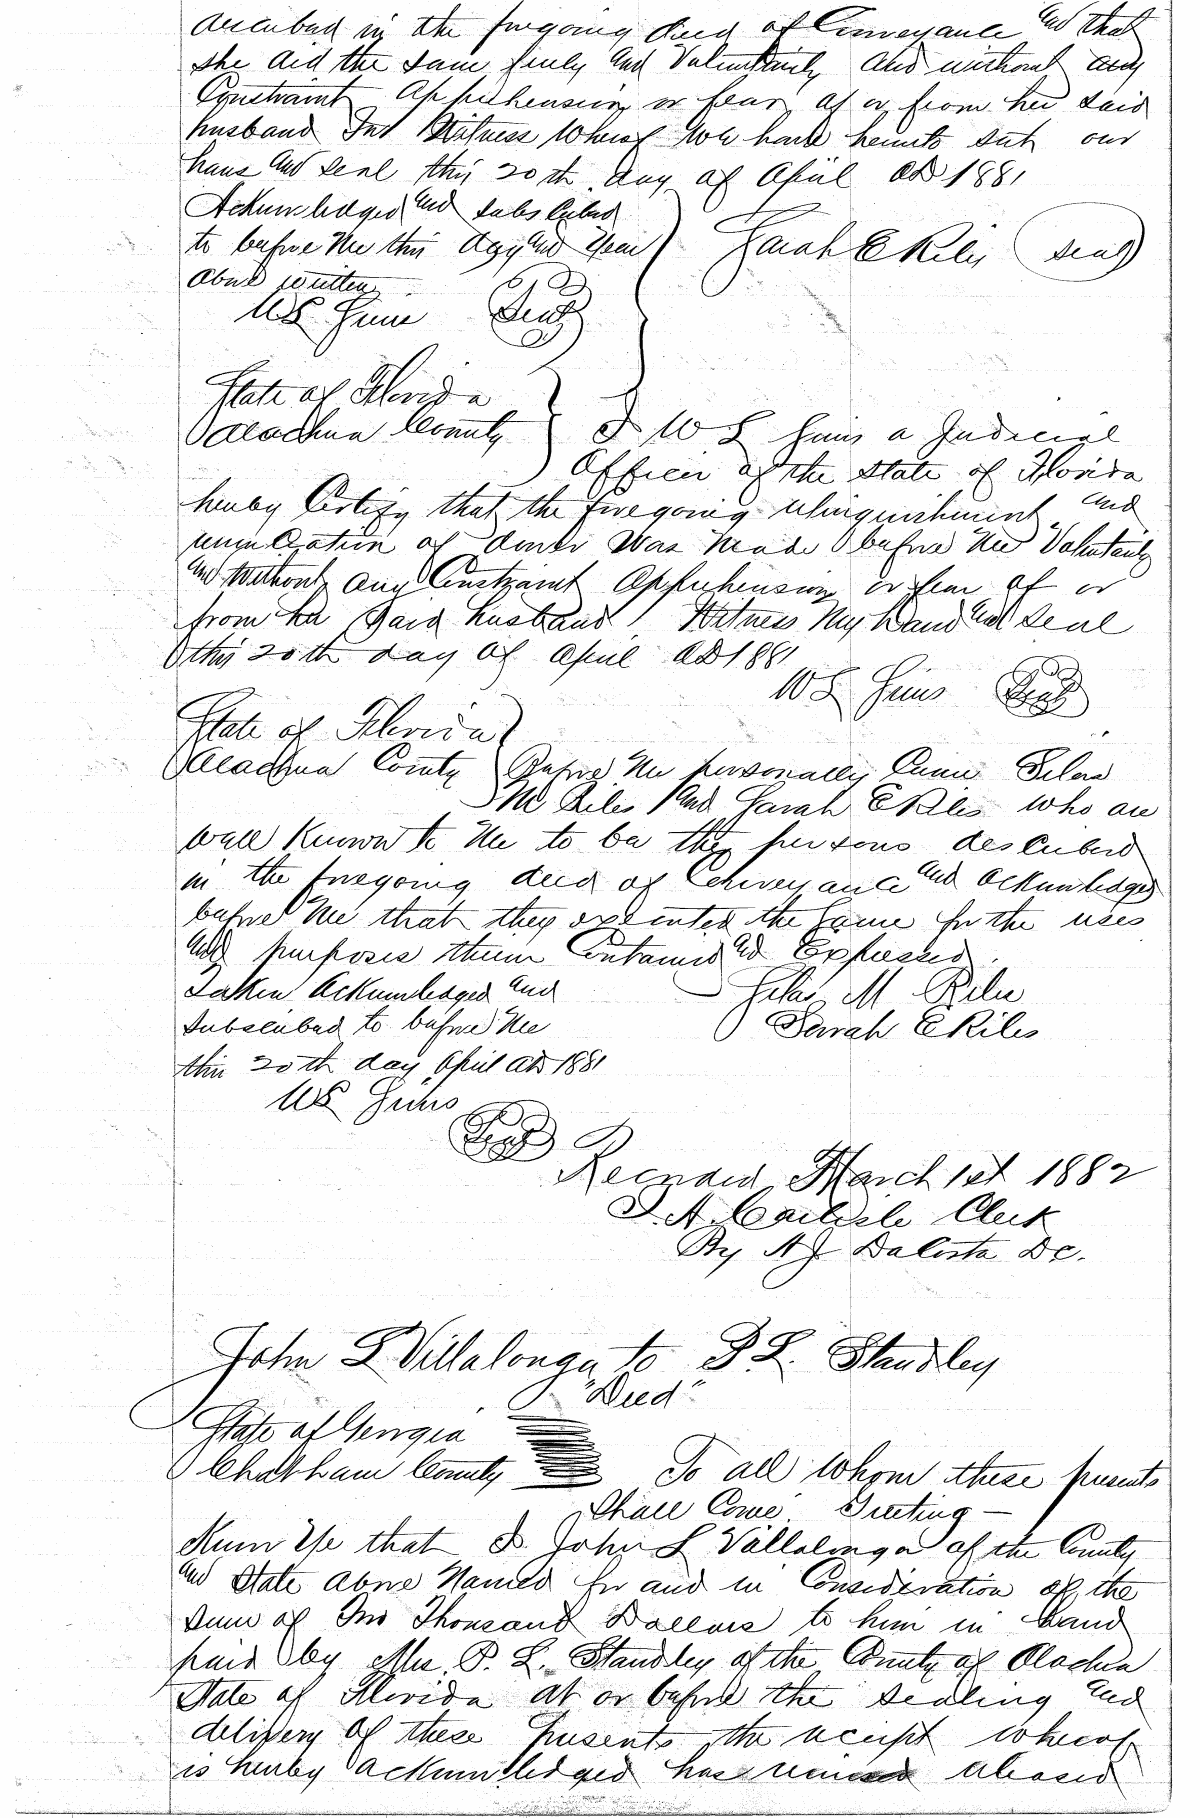 described in the foregoing deed of Conveyance and that
she did the same freely and Voluntarily and without any
Constraint Apprehension or fear of or from her said
husband In Witness Whereof We have hereunto set our
hans and seal this 20th day of April AD 1881
Acknowledged and subscribed
to before Me this day and Year Sarah E Riles (Seal)
above written
W S Sims Seal
State of Florida
Alachua County I W S Sims a Judicial
Officer of the State of Florida
hereby Certify that the foregoing relinquishment and
renunciation of dower Was Made before Me Voluntarily
and Without any Constraint Apprehension or fear of or
from her said husband Witness My hand and seal
this 20th day of April AD 1881
W S Sims Seal
State of Florida
Alachua County Before Me personally Came Silas
M Riles And Sarah E Riles who are
well Known to Me to be the persons described
in the foregoing deed of Conveyance and acknowledged
before Me that they executed the same for the uses
and purposes therein Contained and Expressed.
Taken Acknowledged and Silas M Riles
Subscribed to before Me Sarah E Riles
this 20th day April AD 1881
W S Sims
Seal
Recorded March 1st 1882
J. A. Carlisle Clerk
By A J DaCosta DC.
John L Villalonga to P. L. Standley
"Deed"
State of Georgia
Chatham County To all Whom these presents
Shall Come Greeting —
Know Ye that I John L Villalonga of the County
and State above Named for and in Consideration of the
sum of Two Thousand Dollars to him in hand
paid by Mrs P. L. Standley of the County of Alachua
State of Florida at or before the sealing and
delivery of these presents the receipt whereof
is hereby acknowledged has remised released